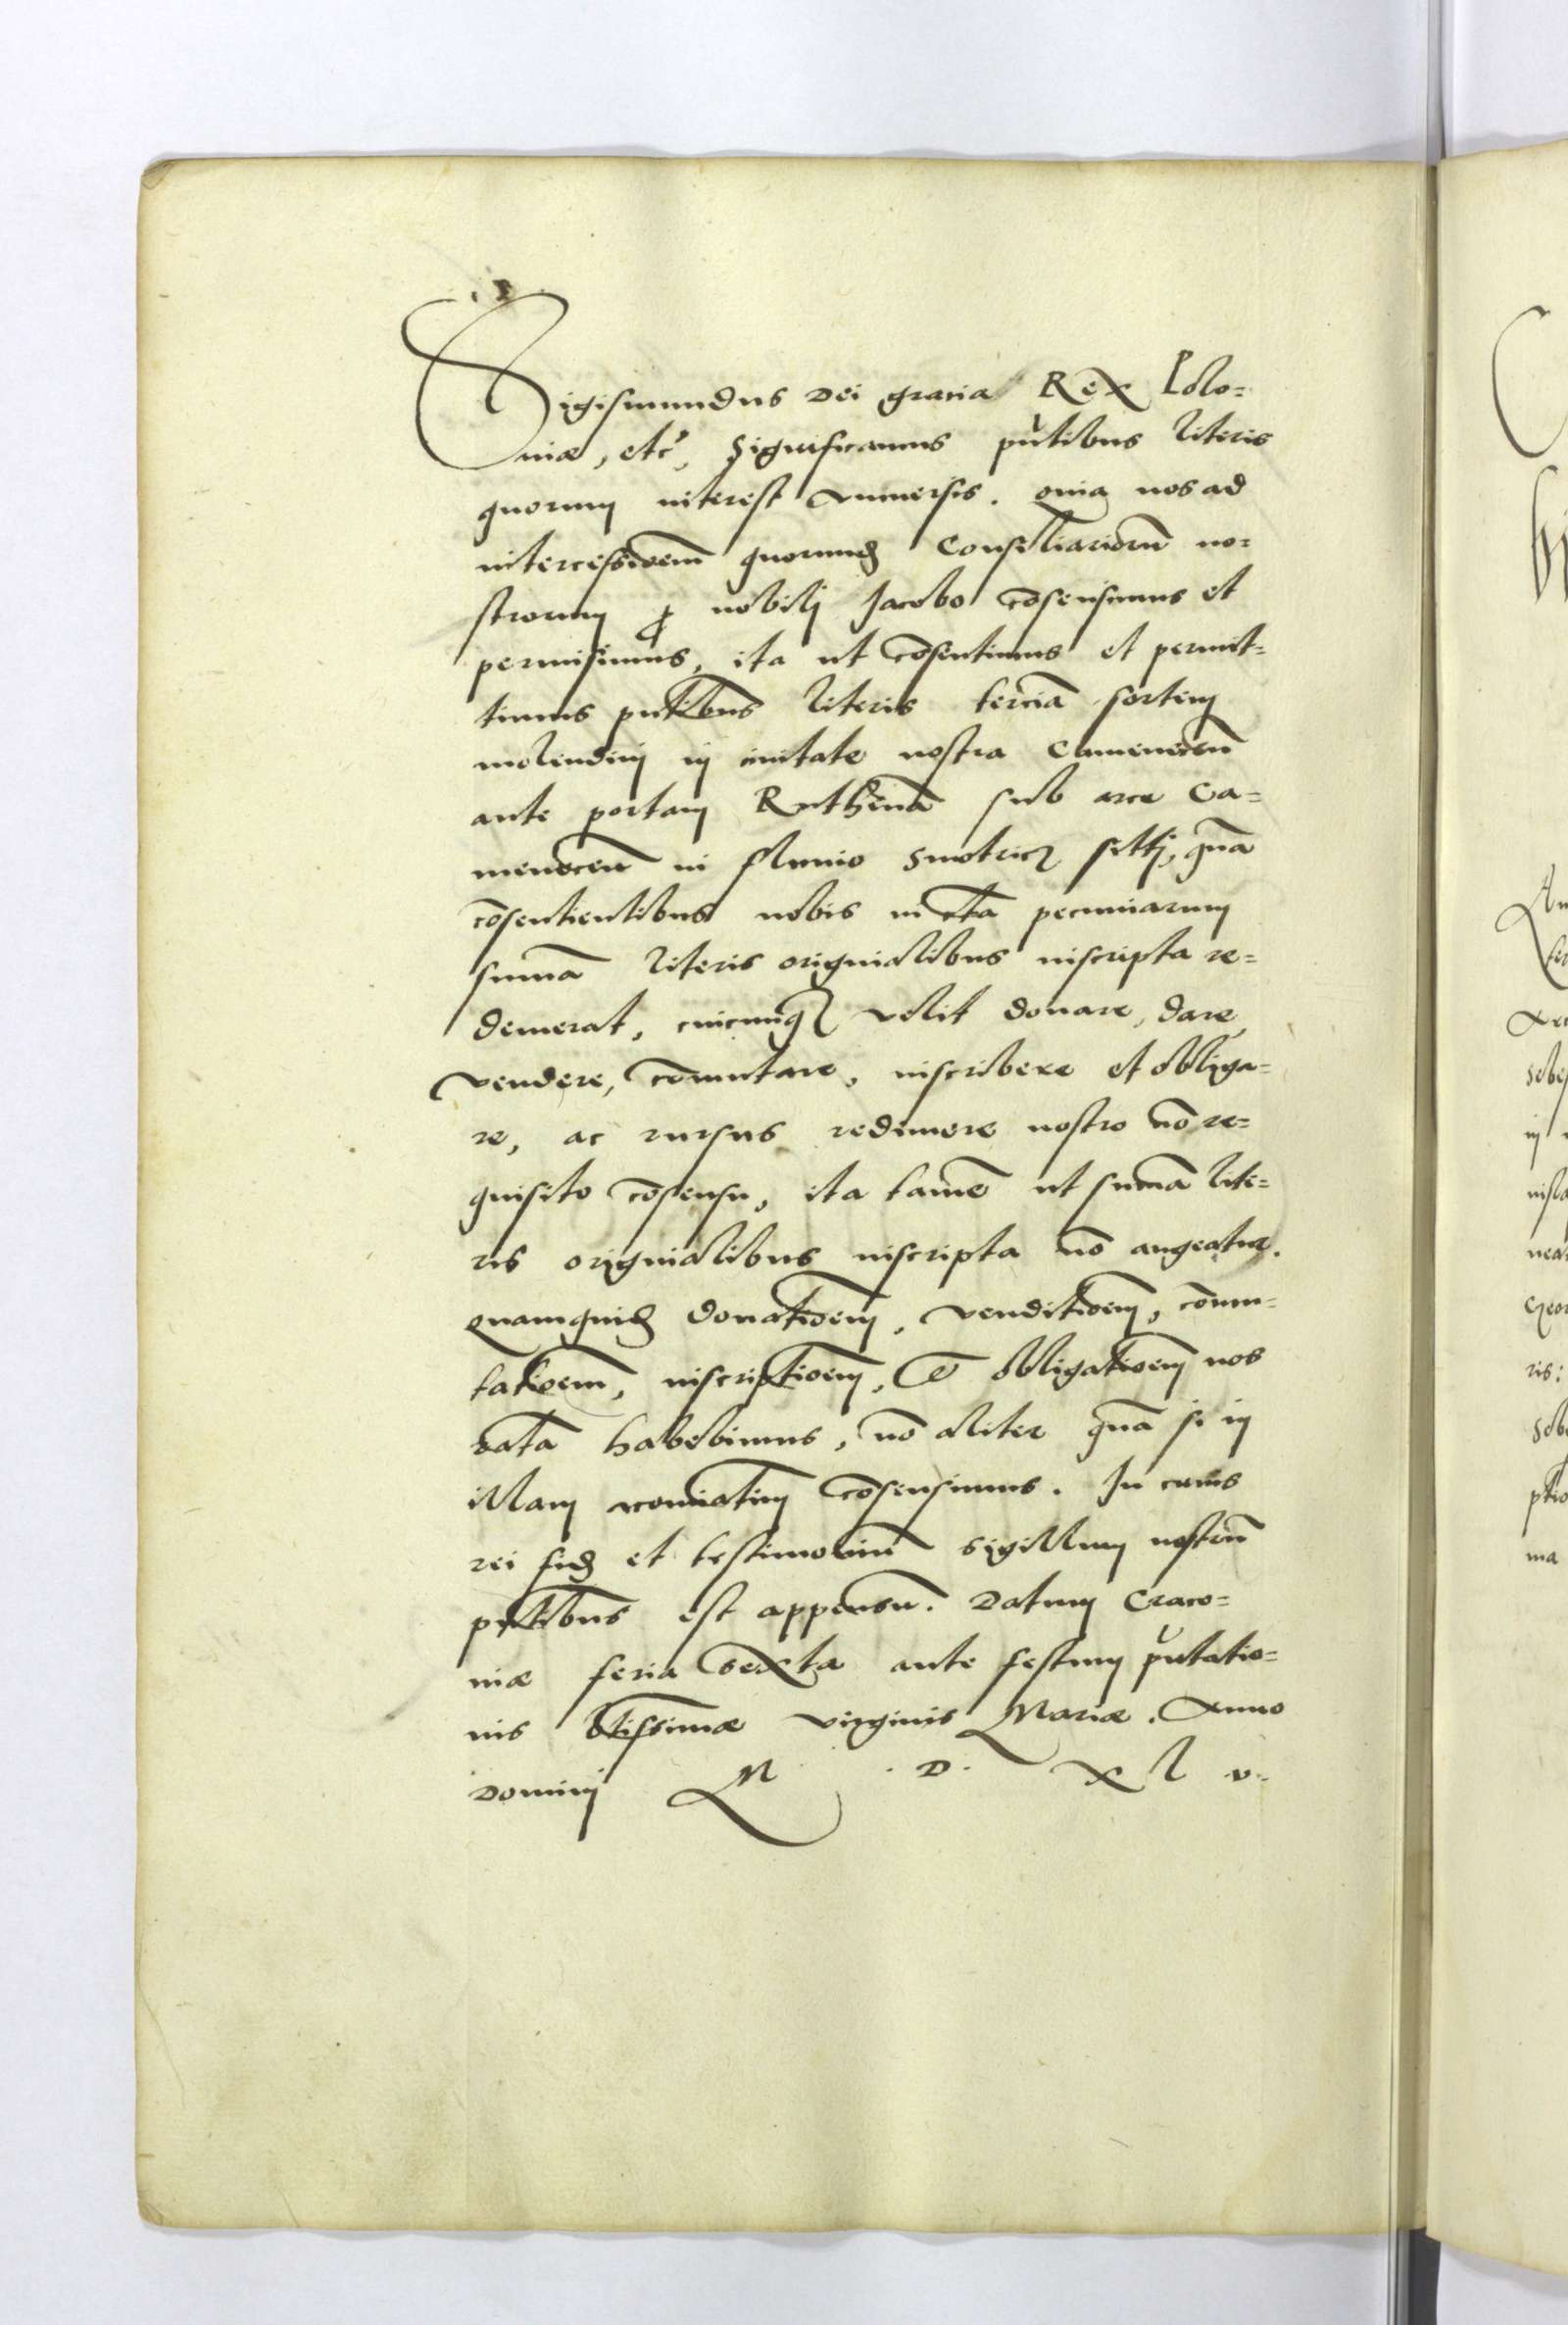 Sigismundus Dei gracia Rex Polo=
niæ, etc̃, Significamus pñtibus literis
quorum interest vniuersis. quia nos ad
intercessioem̃ quorund̃ Consiliariorũ no=
strorum ꝓ nobilj Jacobo cõsensimus et
permisimus, ita ut cõsentimus et permit=
timus pñtibus literis terciã sortem
molendinj in ciuitate nostra Cameneceñ
ante portam Ruthenã sub arce Ca=
meneceñ in fluuio Smotricz sitj, quã
cõsentientibus nobis in cta pecuniarum
sumã literis originalibus inscripta re=
demerat, cuicumq velit donare, dare,
vendere, cõmutare, inscribere et obliga=
re, ac rursus redimere nostro nõ re=
quisito cõsensu, ita tamẽ ut sumã lite=
ris originalibus inscripta nõ augeatur.
quamquid̃ donatioem̃, venditioem̃, cõmu=
tatioem̃, inscriptioem̃, et obligatioem̃ nos
ratã habebimus, nõ aliter quã si in
illam nominatim cõsensimus. In cuius
rei fid̃ et testimoniũ sigillum nostrũ
pñtibus est appensũ. Datum Craco=
niæ feria sexta ante festum pñtatio=
nis btissimæ virginis Mariæ. Anno
Dominj M . D . X L v.